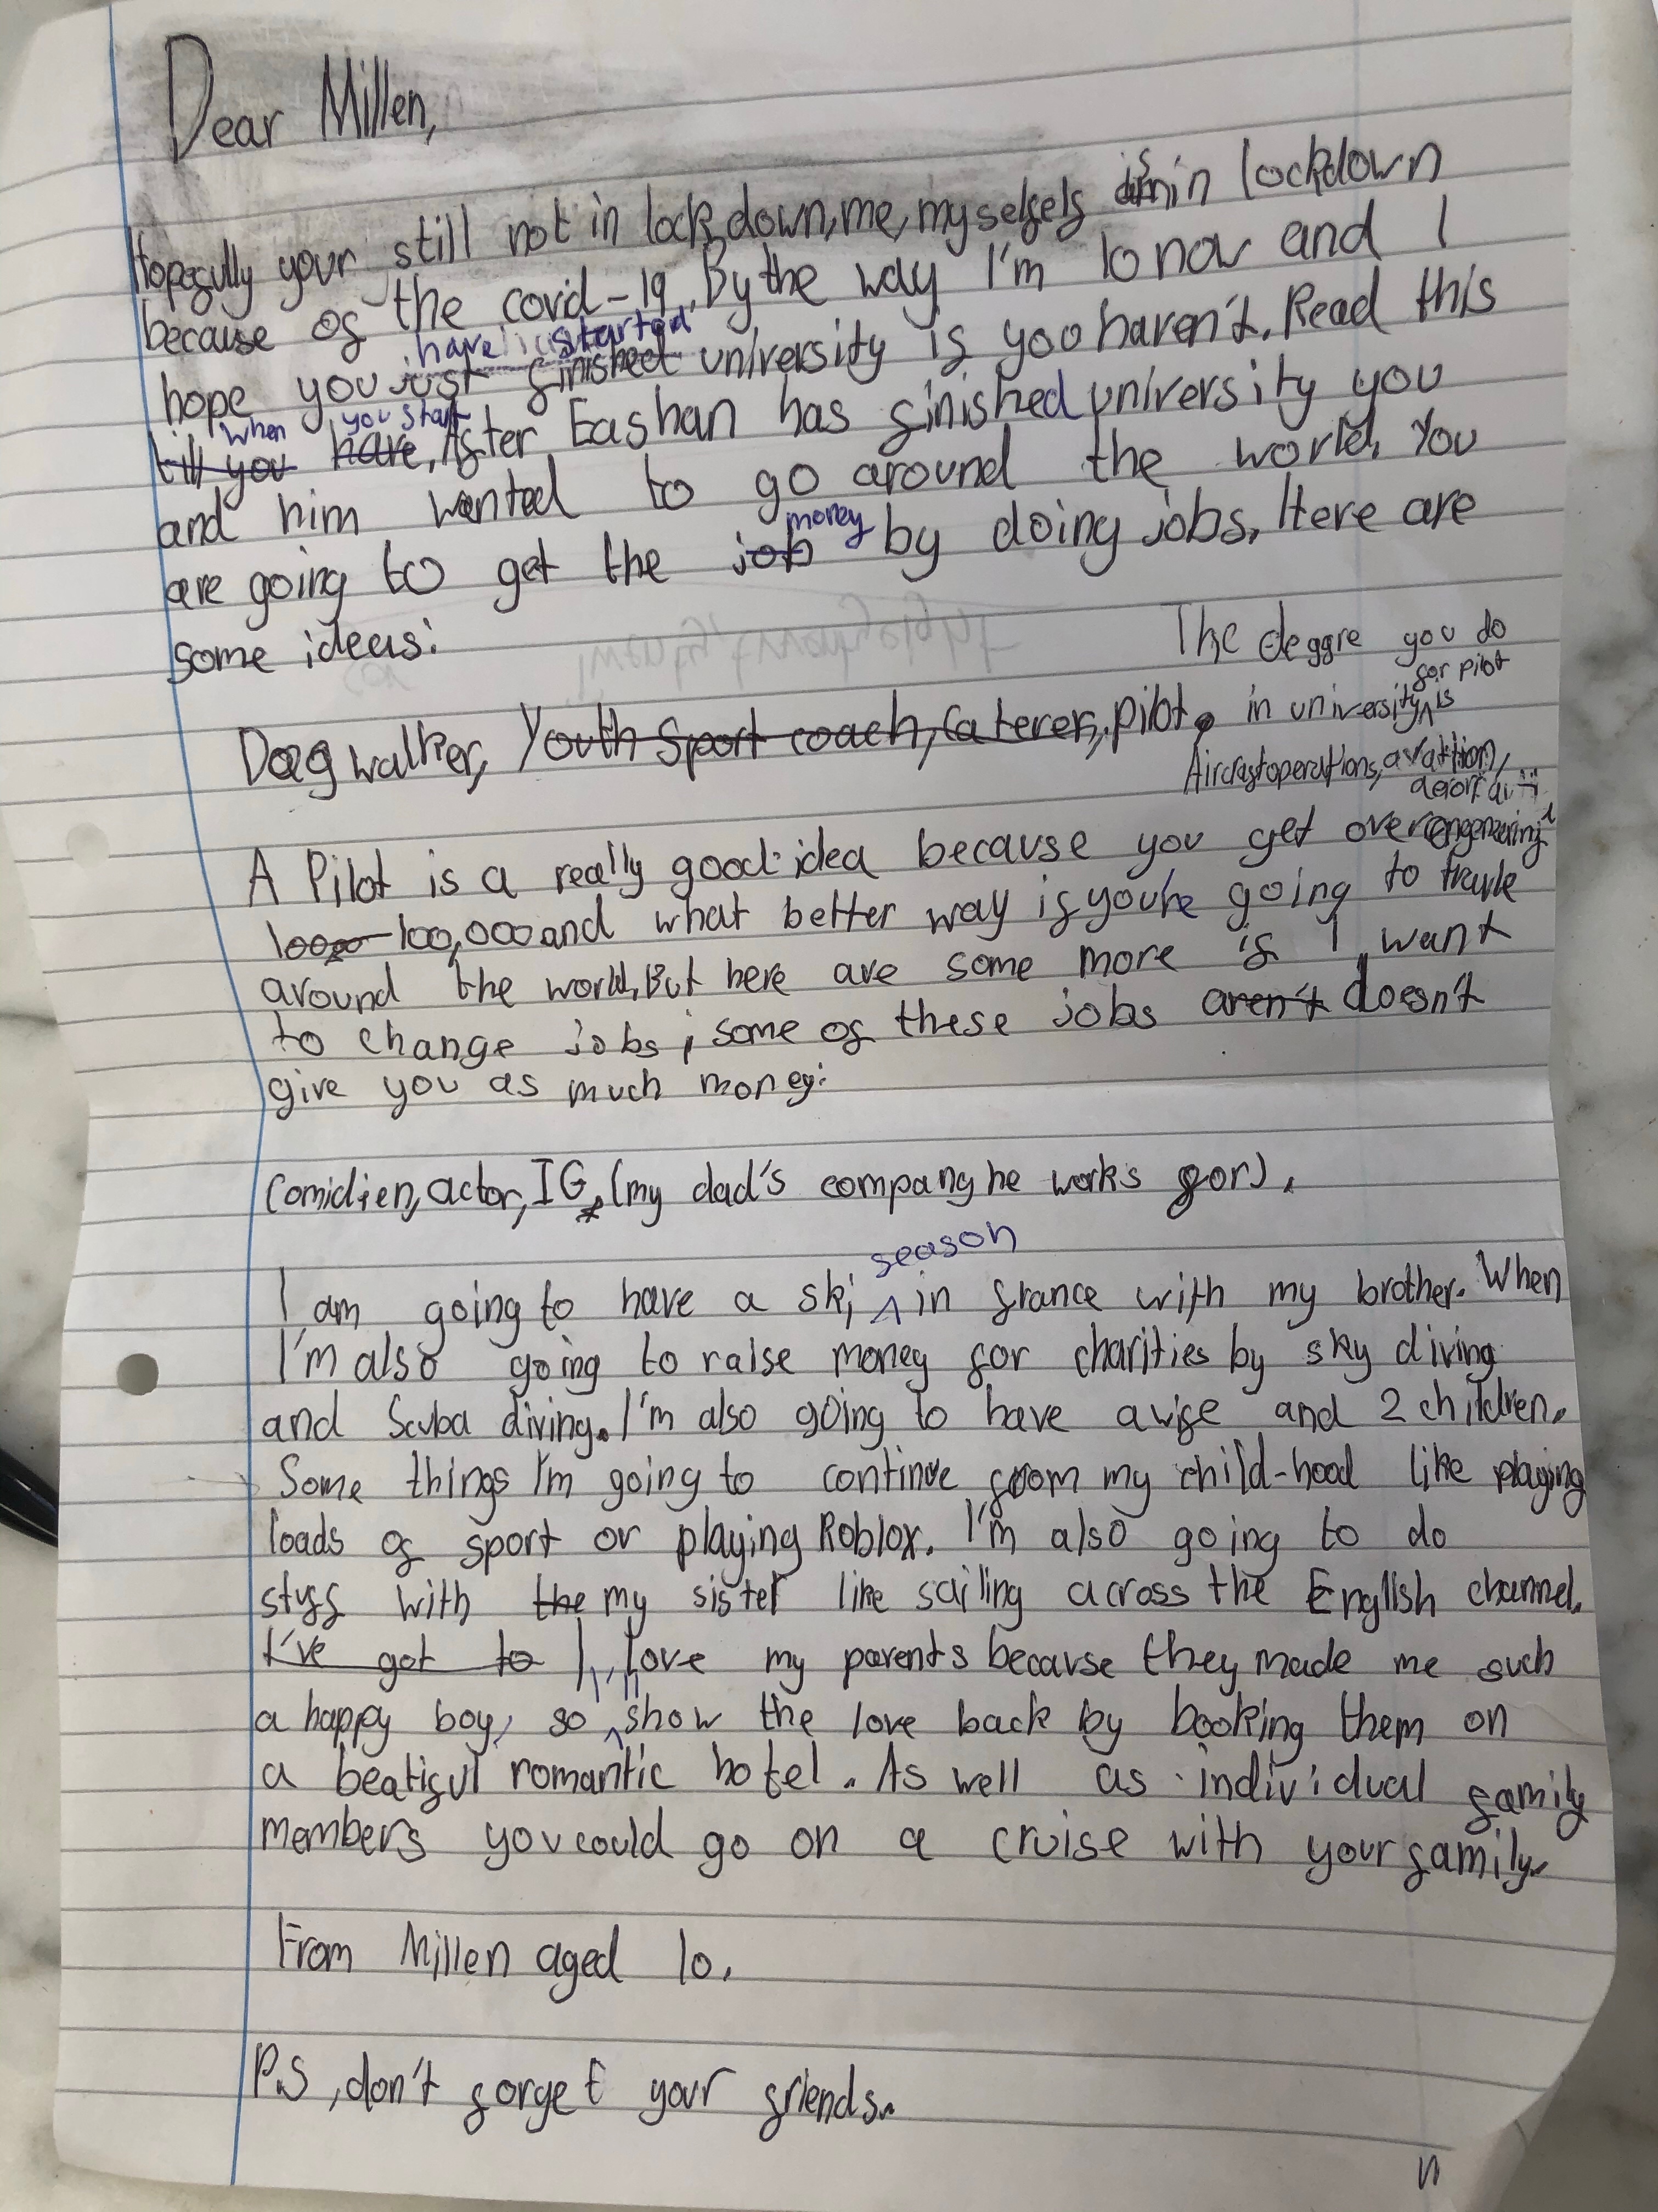 Dear Millen,
Hopefully your still not in lockdown, me, myself is in lockdown
because of the covid-19. By the way I'm 10 now and I
have started
hope you just finished university if you haven't. Read this
when you start
till you have, After Eashan has finished university you
and him wanted to go around the world. You
money
are going to get the job by doing jobs. Here are
some ideas:
The deggre you do
for pilot
in university is
Dog walker, Youth Sport coach, Caterer, pilot.
Aircraft operations, aviation,
A Pilot is a really good idea because you get over
engeneering
100,000 and what better way if you're going to travle
around the world. But here are some more if I want
to change jobs, some of these jobs aren't doesn't
give you as much money:
Comidien, actor, IG, (my dad's company he works for).
season
I am going to have a ski in france with my brother. When
I'm also going to raise money for charities by sky diving
and Scuba diving. I'm also going to have a wife and 2 children.
Some things I'm going to continue from my child-hood like playing
loads of sport or playing Roblox. I'm also going to do
stuff with the my sister like sailing across the English channel.
I've got to I love my parents because they made me such
a happy boy, so I'll show the love back by booking them on
a beatiful romantic hotel. As well as individual family
members you could go on a cruise with your family.
From Millen aged 10.
P.S, don't forget your friends.